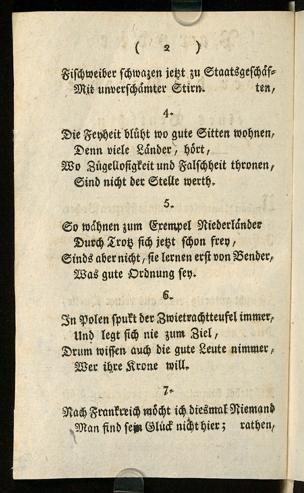 ( 2 )
Fischweiber schwazen jetzt zu Staatsgeschäf-
Mit unverschämter Stirn. ten,
4.
Die Feyheit blüht wo gute Sitten wohnen,
Denn viele Länder, hört,
Wo Zügellosigkeit und Falschheit thronen,
Sind nicht der Stelle werth.
5.
So wähnen zum Exempel Niederländer
Durch Trotz sich jetzt schon frey,
Sinds aber nicht, sie lernen erst von Bender,
Was gute Ordnung sey.
6.
In Polen spukt der Zwietrachtteufel immer,
Und legt sich nie zum Ziel,
Drum wissen auch die gute Leute nimmer,
Wer ihre Krone will.
7.
Nach Frankreich möcht ich diesmal Niemand
Man find sein Glück nicht hier; rathen,